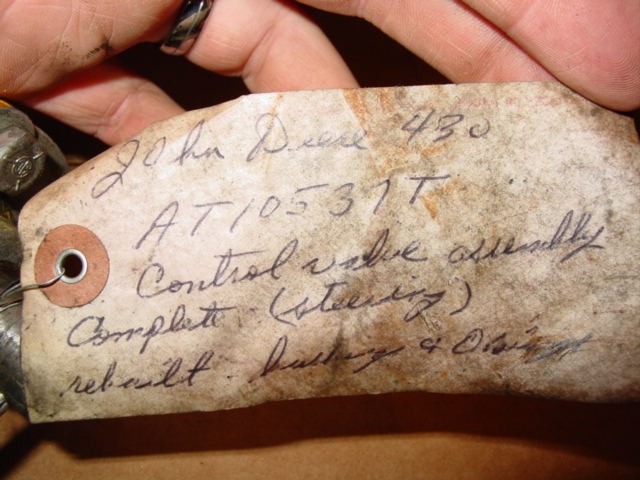 John Deere 430
AT10537T
Control valve assembly
Complete (steering)
rebuilt - bushing & O rings